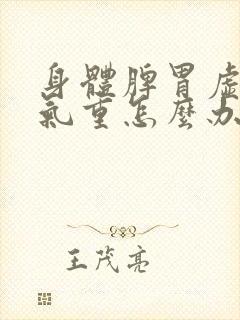 身體脾胃虛
氣重怎麼办
王茂亮